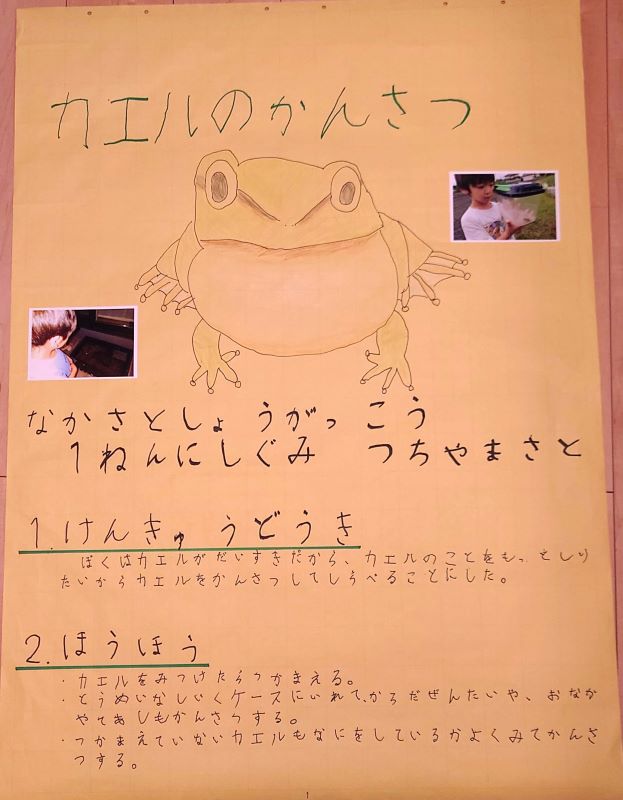 カエルのかんさつ
なかさとしょうがっこう
1ねんにしぐみ つちやまさと
1.けんきゅうどうき
ぼくはカエルがだいすきだから、カエルのことをもっとしり
たいからカエルをかんさつしてしらべることにした。
2.ほうほう
・カエルをみつけたらつかまえる。
・とうめいなしいくケースにいれて、からだぜんたいや、おなか
やてあしもかんさつする。
・つかまえていないカエルもなにをしているかよくみてかんさ
つする。
1